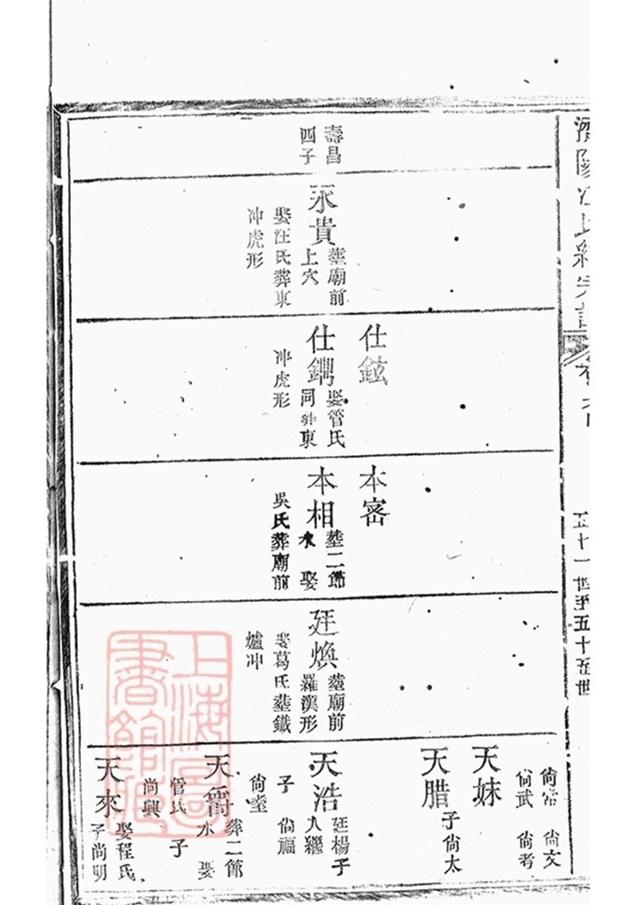 濟陽江氏統宗譜
五十一世至五十五世
壽昌
四子
永貴
塟廟前
上穴
娶汪氏葬東
冲虎形
仕鉉
仕
娶管氏
同塟東
冲虎形
本密
本相
塟二節
水 娶
吳氏葬廟前
廷煥
塟廟前
羅漢形
娶葛氏塟鐵
爐冲
尙常 尙文
尙武 尙考
天妹
天腊
子尙太
天浩
廷楊子
入繼
子 尙福
尙堂
天爵
葬二節
水 娶
管氏 子
尙興
天來
娶程氏
子尙明
上海圖書館藏